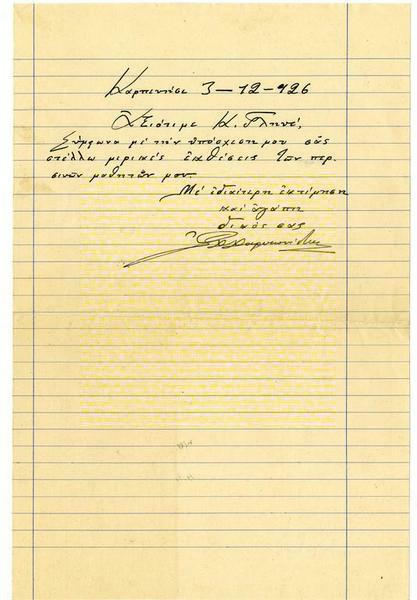 Καρπενήσι 3-12-926
Ἀξιότιμε Κ. Γληνέ,
Σύμφωνα μέ τήν ὑπόσχεσή μου σᾶς
στέλλω μερικές ἐκθέσεις τῶν περ.
σινῶν μαθητῶν μου.
Μέ ἰδιαίτερη ἐκτίμηση
καί ἀγάπη
δικός σας